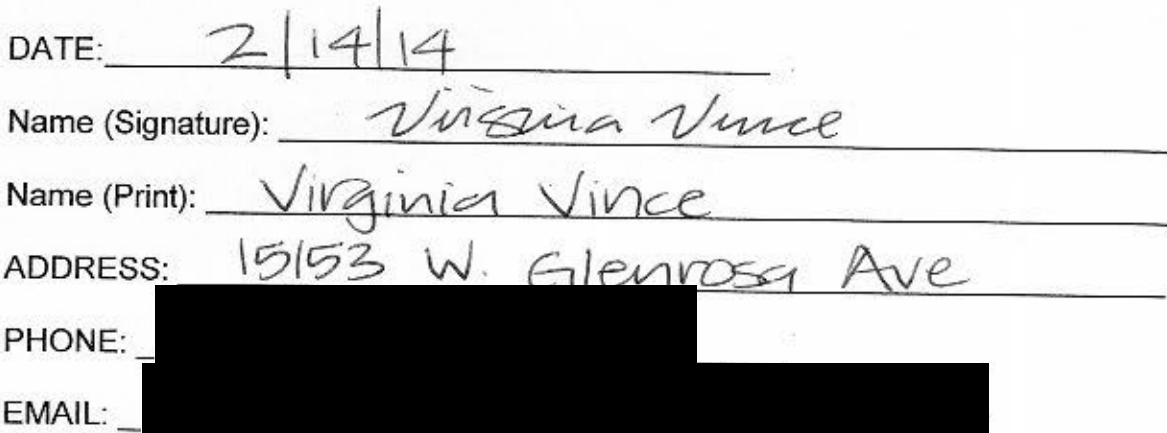 DATE: 2/14/14
Name (Signature): Virginia Vince
Name (Print): Virginia Vince
ADDRESS: 15153 W. Glenrosa Ave
PHONE:
EMAIL: